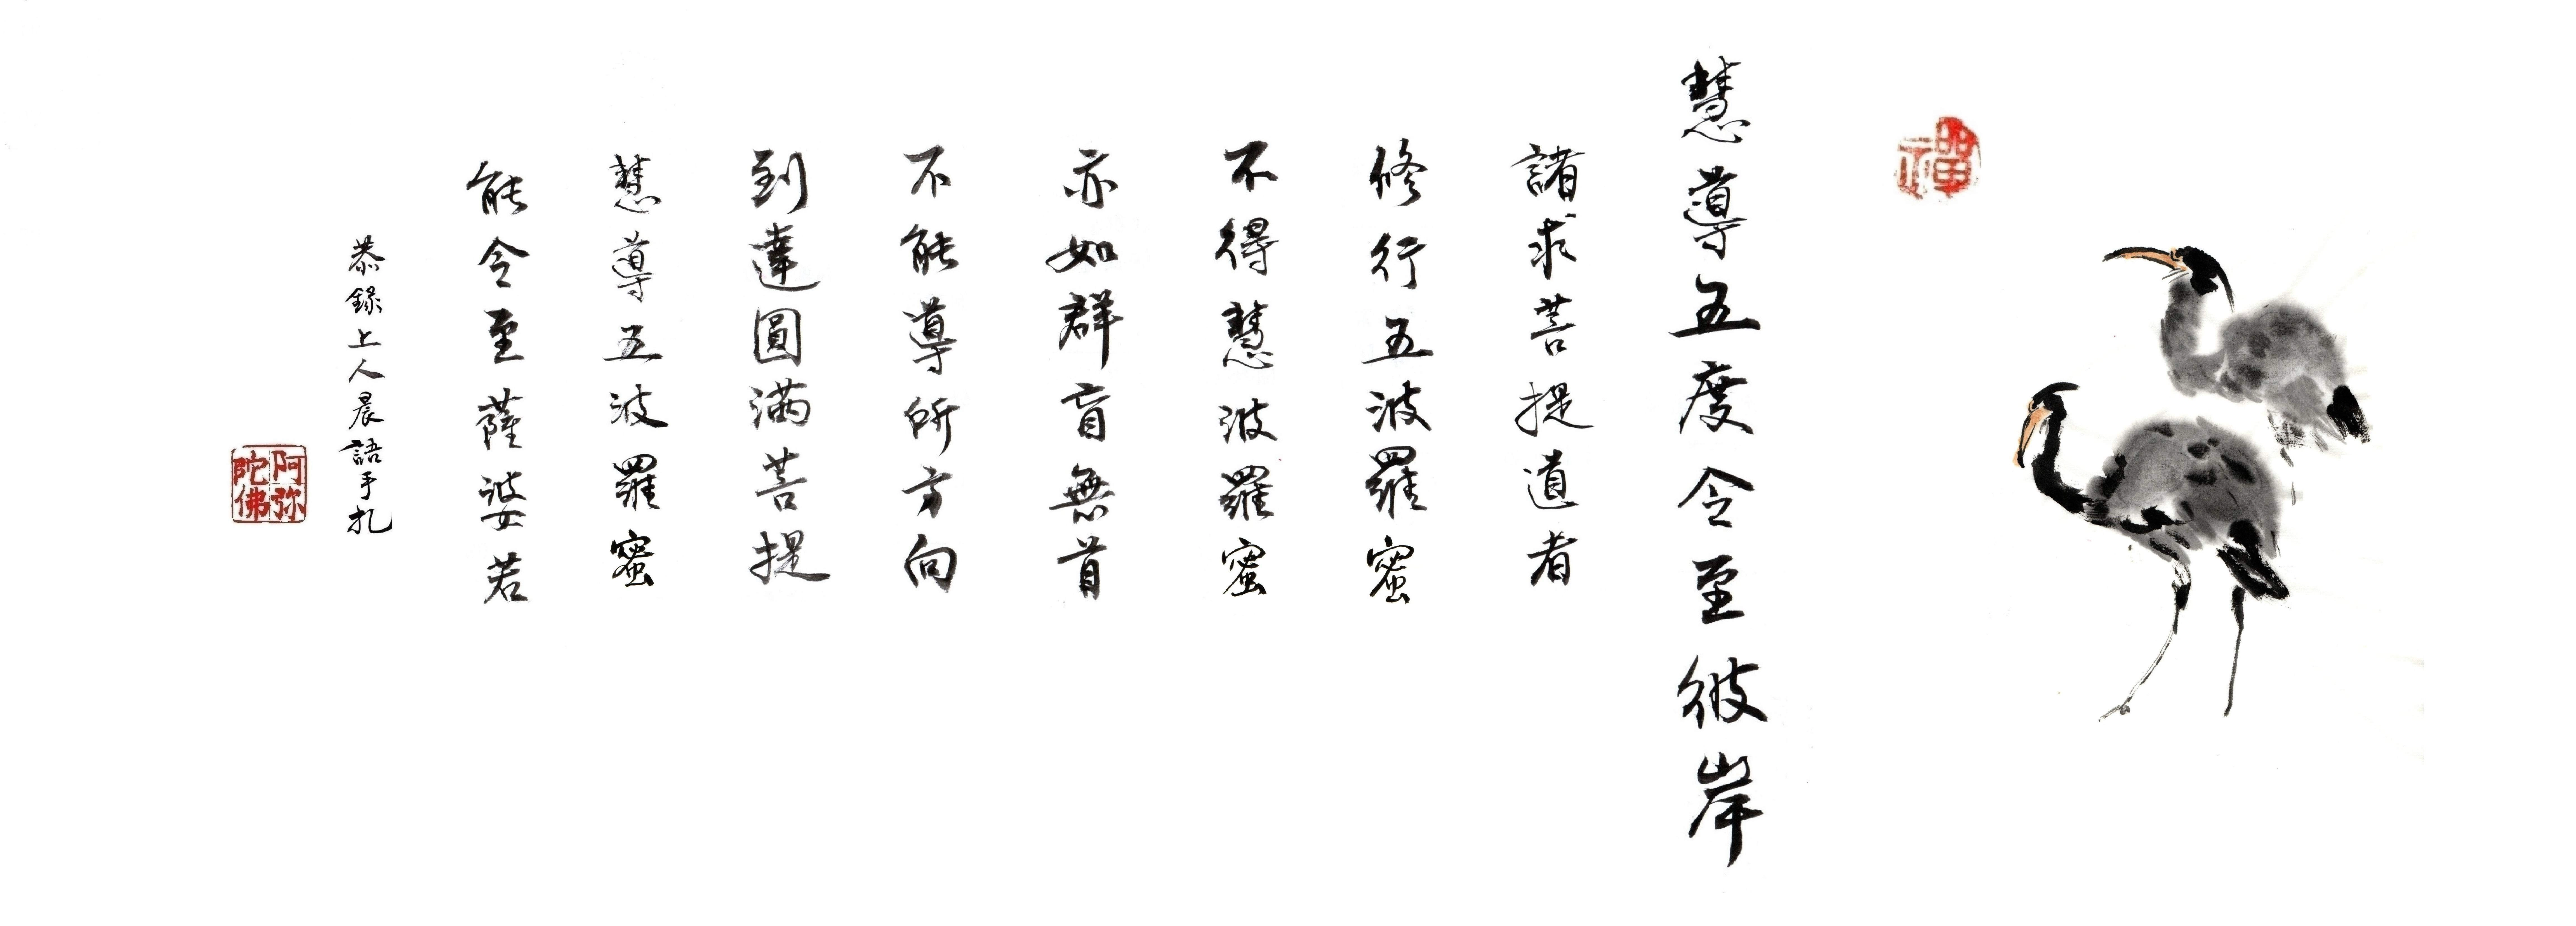 禪
慧導五度令至彼岸
諸求菩提道者
修行五波羅蜜
不得慧波羅蜜
亦如群盲無首
不能導所方向
到達圓滿菩提
慧導五波羅蜜
能令至薩婆若
恭錄上人晨語手扎
阿弥陀佛